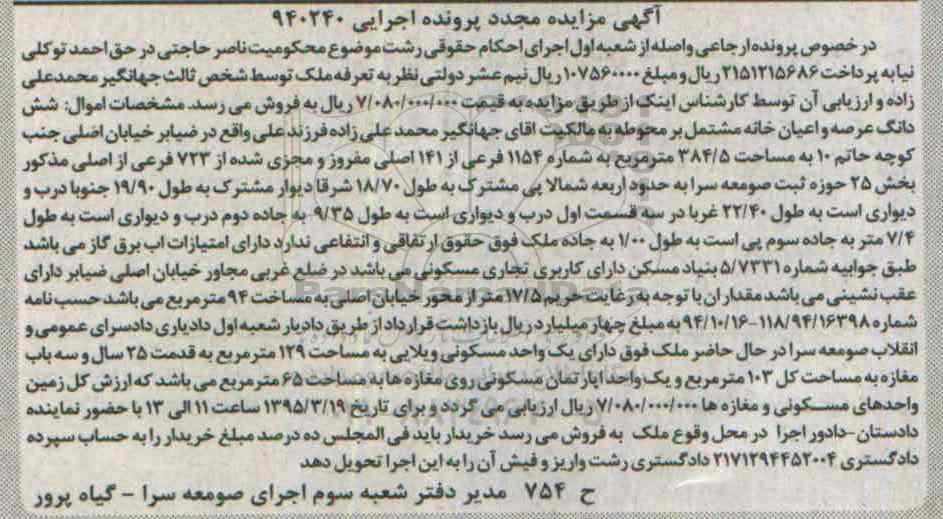 آگهی مزایده مجدد پرونده اجرایی ۹۴۰۲۴۰
در خصوص پرونده ارجاعی واصله از شعبه اول اجرای احکام حقوقی رشت موضوع محکومیت ناصر حاجتی در حق احمد توکلی
نیا به پرداخت ۲۱۵۱۲۱۵۶۸۶ ریال و مبلغ ۱۰۷۵۶۰۰۰۰ ریال نیم عشر دولتی نظر به تعرفه ملک توسط شخص ثالث جهانگیر محمدعلی
زاده و ارزیابی آن توسط کارشناس اینک از طریق مزایده به قیمت ۷/۰۸۰/۰۰۰/۰۰۰ ریال به فروش می رسد. مشخصات اموال: شش
دانگ عرصه و اعیان خانه مشتمل بر محوطه به مالکیت اقای جهانگیر محمد علی زاده فرزند علی واقع در ضیابر خیابان اصلی جنب
کوچه حاتم ۱۰ به مساحت ۳۸۴/۵ مترمربع به شماره ۱۱۵۴ فرعی از ۱۴۱ اصلی مفروز و مجزی شده از ۷۲۳ فرعی از اصلی مذکور
بخش ۲۵ حوزه ثبت صومعه سرا به حدود اربعه شمالا پی مشترک به طول ۱۸/۷۰ شرقا دیوار مشترک به طول ۱۹/۹۰ جنوبا درب و
دیواری است به طول ۲۲/۴۰ غربا در سه قسمت اول درب و دیواری است به طول ۹/۳۵ به جاده دوم درب و دیواری است به طول
۷/۴ متر به جاده سوم پی است به طول ۱/۰۰ به جاده ملک فوق حقوق ارتفاقی و انتفاعی ندارد دارای امتیازات اب برق گاز می باشد
طبق جوابیه شماره ۵/۷۳۳۱ بنیاد مسکن دارای کاربری تجاری مسکونی می باشد در ضلع غربی مجاور خیابان اصلی ضیابر دارای
عقب نشینی می باشد مقدار ان با توجه به رعایت حریم ۱۷/۵ متر از محور خیابان اصلی به مساحت ۹۴ مترمربع می باشد حسب نامه
شماره ۱۱۸/۹۴/۱۶۳۹۸-۹۴/۱۰/۱۶ به مبلغ چهار میلیارد ریال بازداشت قرار داد از طریق دادیار شعبه اول دادیاری دادسرای عمومی و
انقلاب صومعه سرا در حال حاضر ملک فوق دارای یک واحد مسکونی ویلایی به مساحت ۱۲۹ مترمربع به قدمت ۲۵ سال و سه باب
مغازه به مساحت کل ۱۰۳ مترمربع و یک واحد اپارتمان مسکونی روی مغازه ها به مساحت ۶۵ مترمربع می باشد که ارزش کل زمین
واحدهای مسکونی و مغازه ها ۷/۰۸۰/۰۰۰/۰۰۰ ریال ارزیابی می گردد و برای تاریخ ۱۳۹۵/۳/۱۹ ساعت ۱۱ الی ۱۳ با حضور نماینده
دادستان-دادور اجرا در محل وقوع ملک به فروش می رسد خریدار باید فی المجلس ده درصد مبلغ خریدار را به حساب سپرده
دادگستری ۲۱۷۱۲۹۴۴۵۲۰۰۴ دادگستری رشت واریز و فیش آن را به این اجرا تحویل دهد
ح ۷۵۴ مدیر دفتر شعبه سوم اجرای صومعه سرا - گیاه پرور